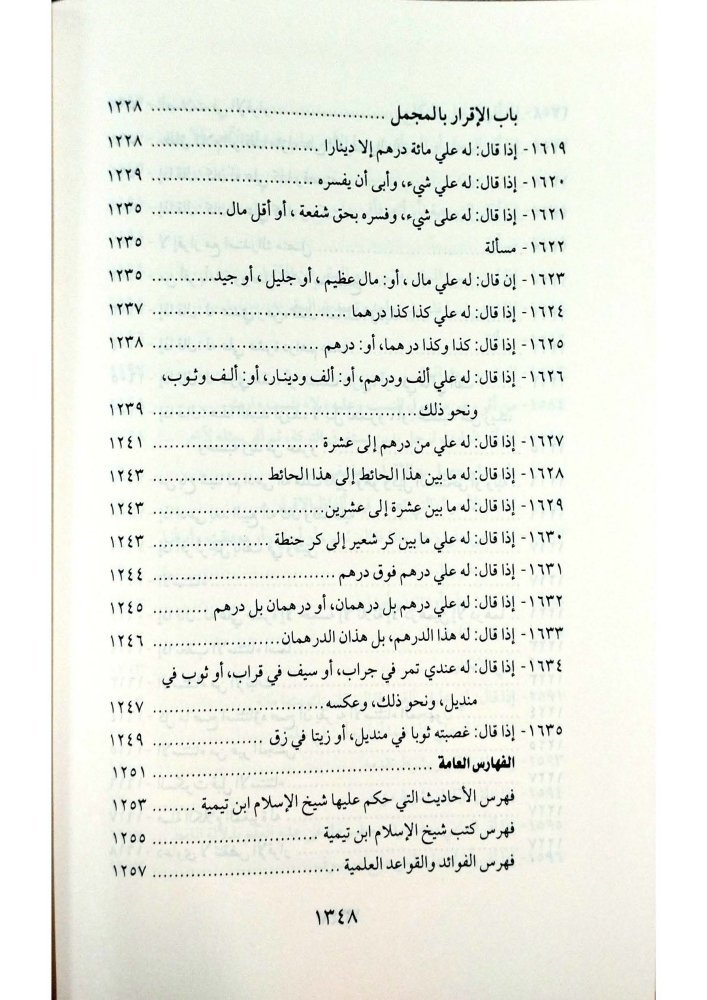 باب الإقرار بالمجمل ........................................ ١٢٢٨
١٦١٩- إذا قال: له علي مائة درهم إلا دينارا ........................ ١٢٢٨
١٦٢٠- إذا قال: له علي شيء، وأبى أن يفسره ........................ ١٢٢٩
١٦٢١- إذا قال: له على شيء، وفسره بحق شفعة ، أو أقل مال ............ ١٢٣٥
١٦٢٢- مسألة ١٢٣٥
١٦٢٣- إن قال: له علي مال ، أو: مال عظيم ، أو جليل ، أو جيد .......... ١٢٣٥
١٦٢٤- إذا قال: له علي كذا كذا درهما ............................ ١٢٣٧
١٦٢٥- إذا قال: كذا وكذا درهما، أو: درهم ........................ ١٢٣٨
١٦٢٦- إذا قال: له علي ألف ودرهم، أو: ألف ودينار، أو: ألف وثوب،
ونحو ذلك ........................................ ١٢٣٩
١٦٢٧- إذا قال: له علي من درهم إلى عشرة ........................ ١٢٤١
١٦٢٨- إذا قال: له ما بين هذا الحائط إلى هذا الحائط ................ ١٢٤٣
١٦٢٩- إذا قال: له ما بين عشرة إلى عشرين ........................ ١٢٤٣
١٦٣٠- إذا قال: له علي ما بين كر شعير إلى كر حنطة ................ ١٢٤٣
١٦٣١- إذا قال: له علي درهم فوق درهم ............................ ١٢٤٤
١٦٣٢- إذا قال: له علي درهم بل درهمان، أو درهمان بل درهم .......... ١٢٤٥
١٦٣٣- إذا قال: له هذا الدرهم، بل هذان الدرهمان .................. ١٢٤٦
١٦٣٤- إذا قال: له عندي تمر في جراب، أو سيف في قراب، أو ثوب في
منديل، ونحو ذلك، وعكسه ............................ ١٢٤٧
١٦٣٥- إذا قال: غصبته ثوبا في منديل، أو زيتا في زق ................ ١٢٤٩
الفهارس العامة ........................................ ١٢٥١
فهرس الأحاديث التي حكم عليها شيخ الإسلام ابن تيمية ........ ١٢٥٣
فهرس كتب شيخ الإسلام ابن تيمية ............................ ١٢٥٥
فهرس الفوائد والقواعد العلمية ............................ ١٢٥٧
١٣٤٨